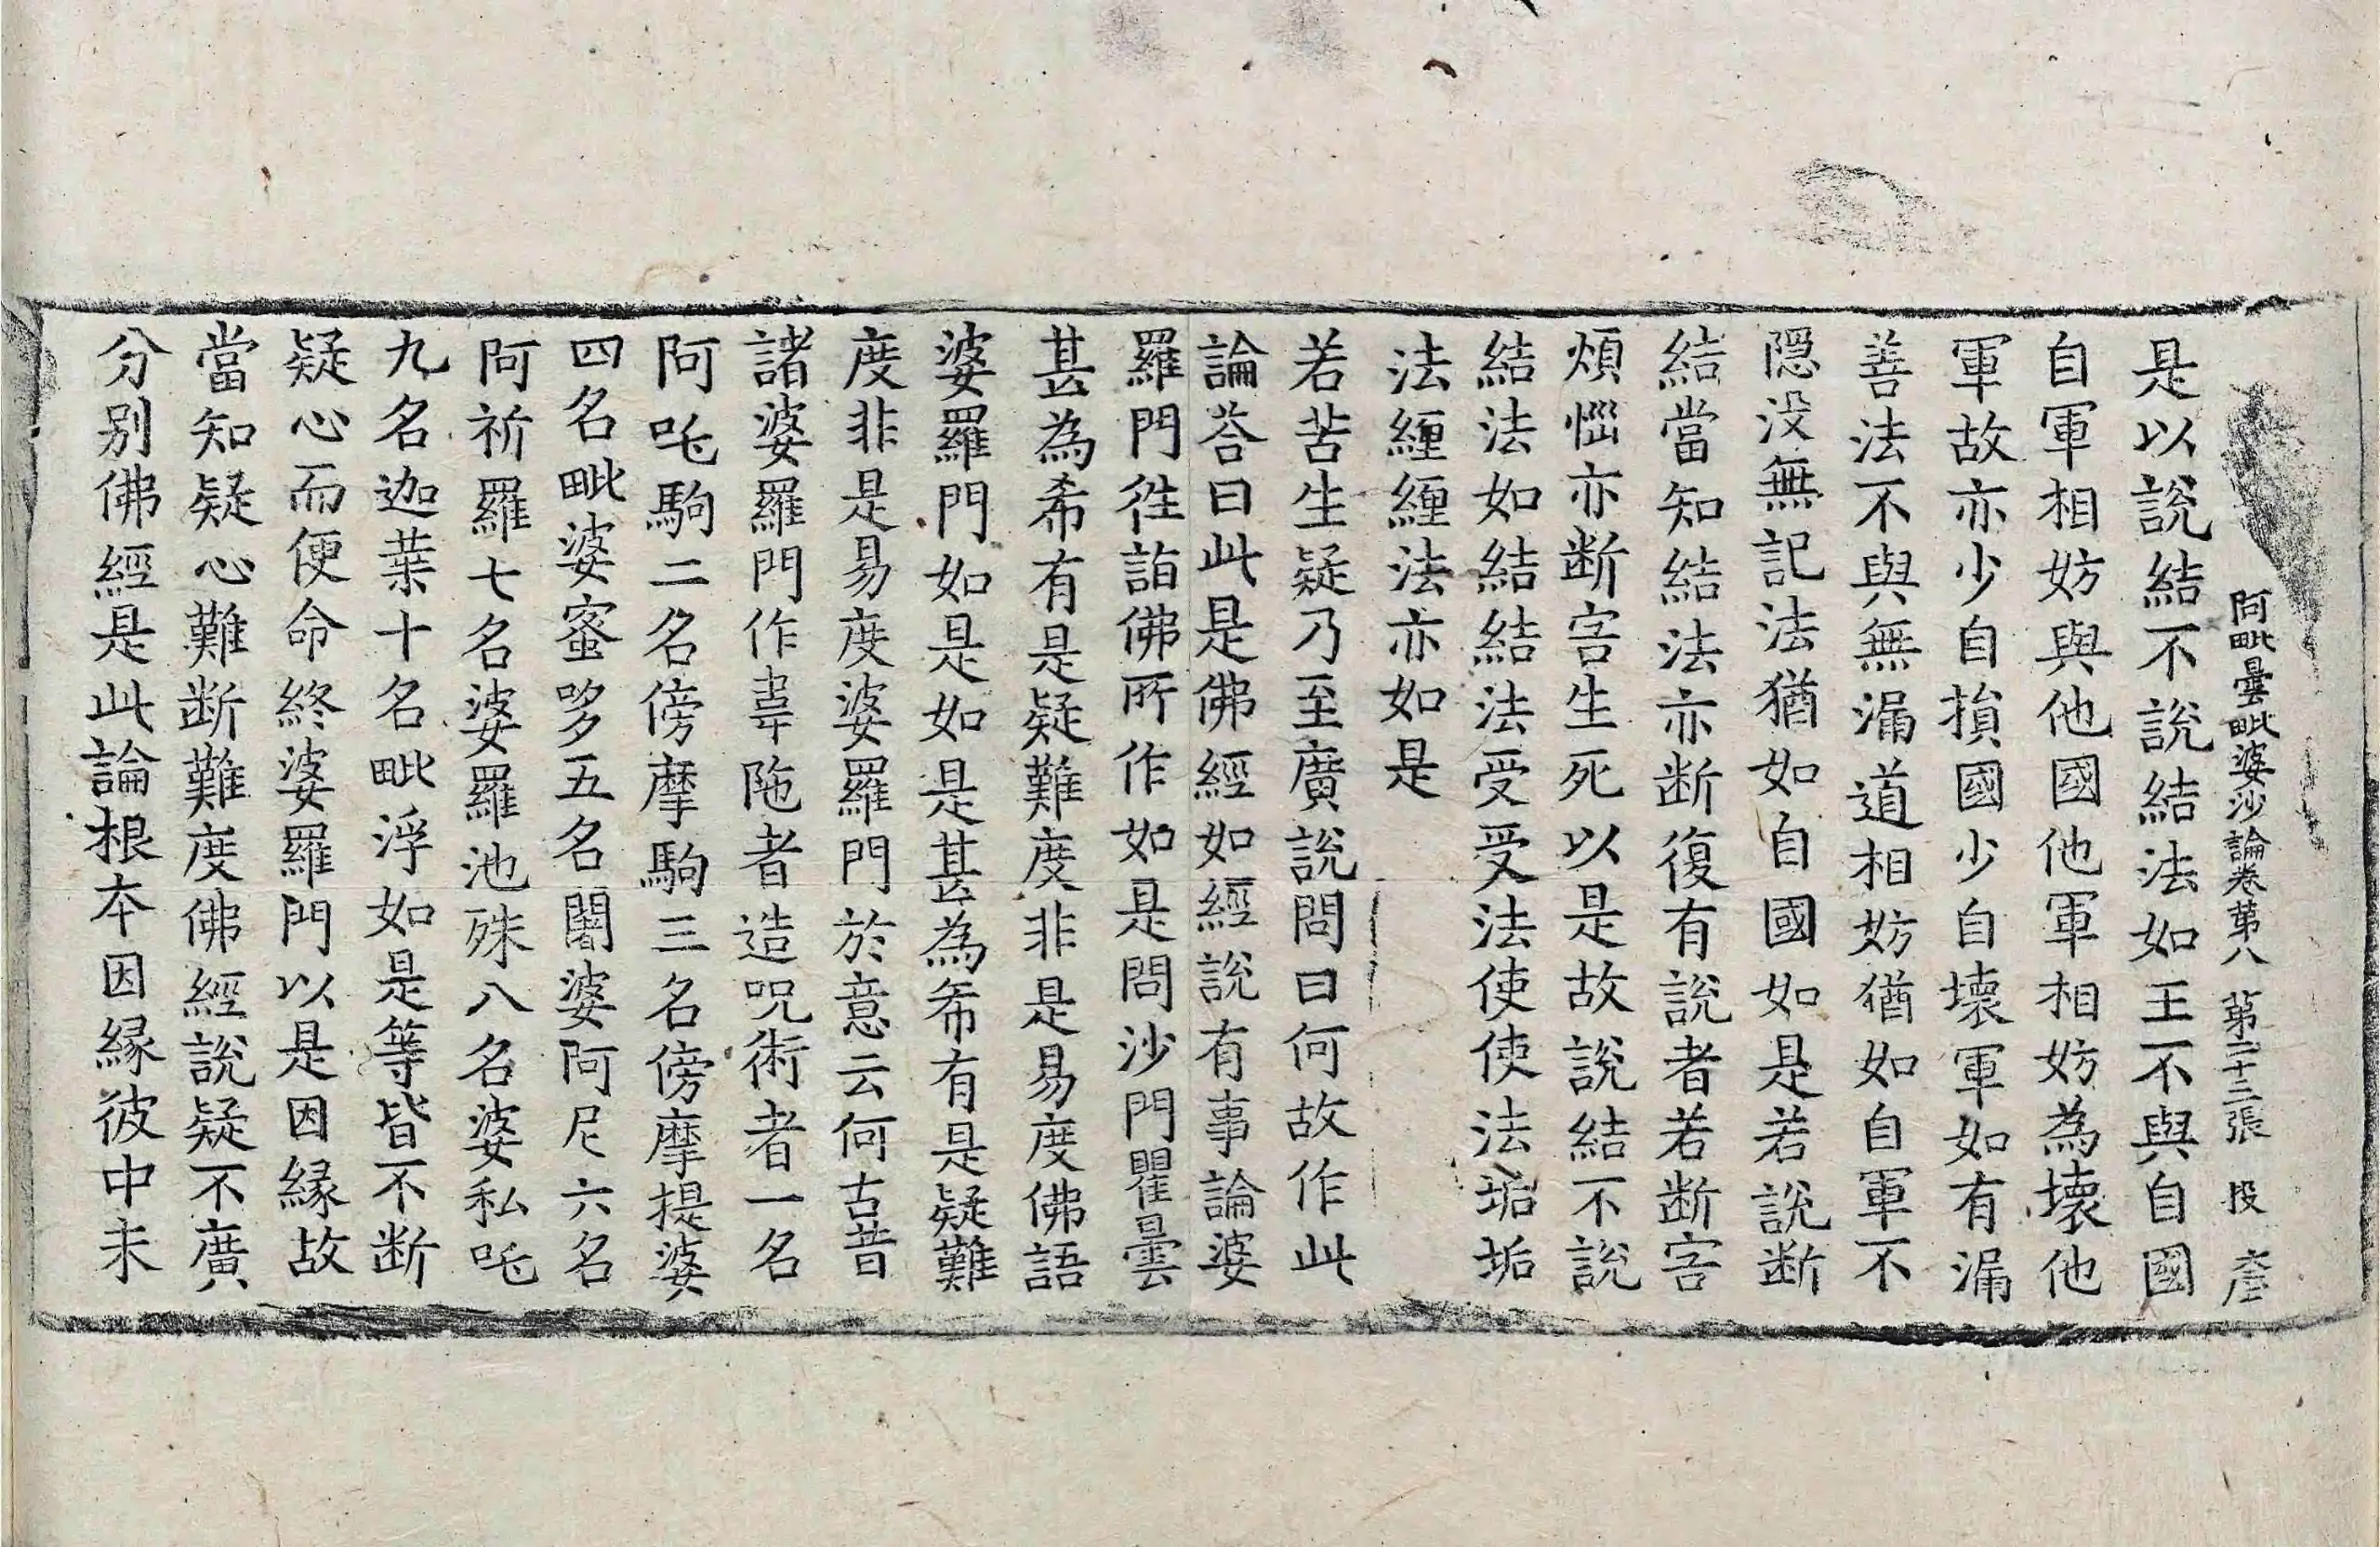 阿毗曇毗婆沙論卷第八 第二十三張 投 彦
是以說結不說結法如王不與自國
自軍相妨與他國他軍相妨為壞他
軍故亦少自損國少自壞軍如有漏
善法不與無漏道相妨猶如自軍不
隱没無記法猶如自國如是若說断
結當知結法亦断復有說者若断害
煩惱亦断害生死以是故說結不說
結法如結結法受受法使使法垢垢
法纏纏法亦如是
若苦生疑乃至廣說問曰何故作此
論荅曰此是佛經如經說有事論婆
羅門徃詣佛所作如是問沙門瞿曇
甚為希有是疑難度非是易度佛語
婆羅門如是如是甚為希有是疑難
度非是易度婆羅門於意云何古昔
諸婆羅門作韋陁者造呪術者一名
阿吒駒二名傍摩駒三名傍摩提婆
四名毗婆蜜哆五名闍婆阿尼六名
阿祈羅七名婆羅池殊八名婆私吒
九名迦葉十名毗浮如是等皆不断
疑心而便命終婆羅門以是因緣故
當知疑心難断難度佛經說疑不廣
分别佛經是此論根本因緣彼中未